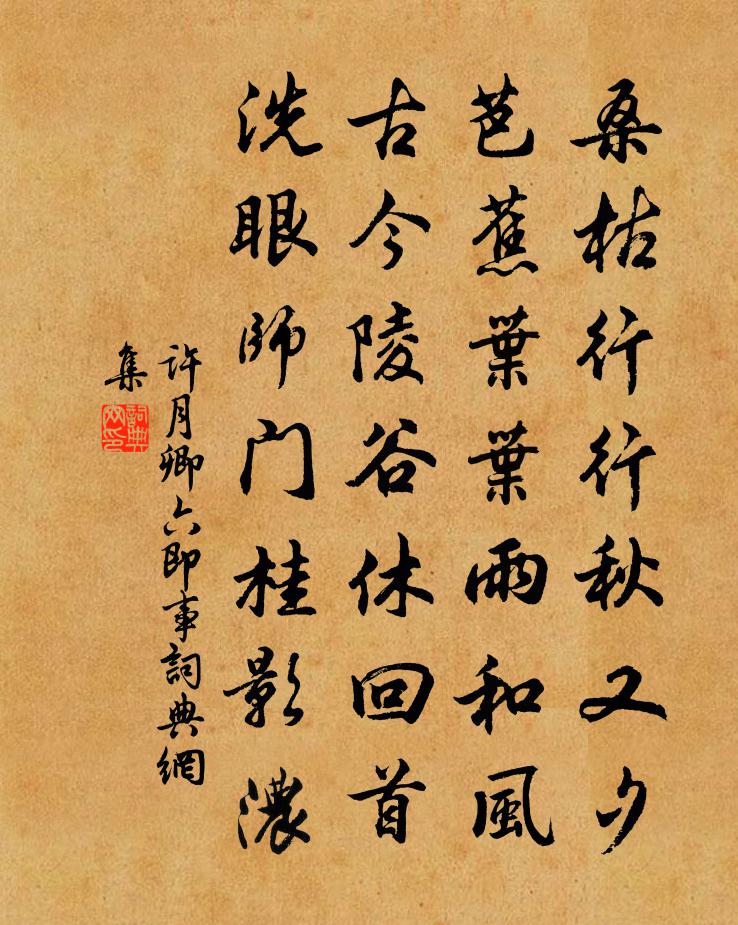 桑枯行行秋又夕
芭蕉葉葉雨和風
古今陵谷休回首
洗眼師门桂影濃
許月卿六即事詞典網
集
詞典
网印